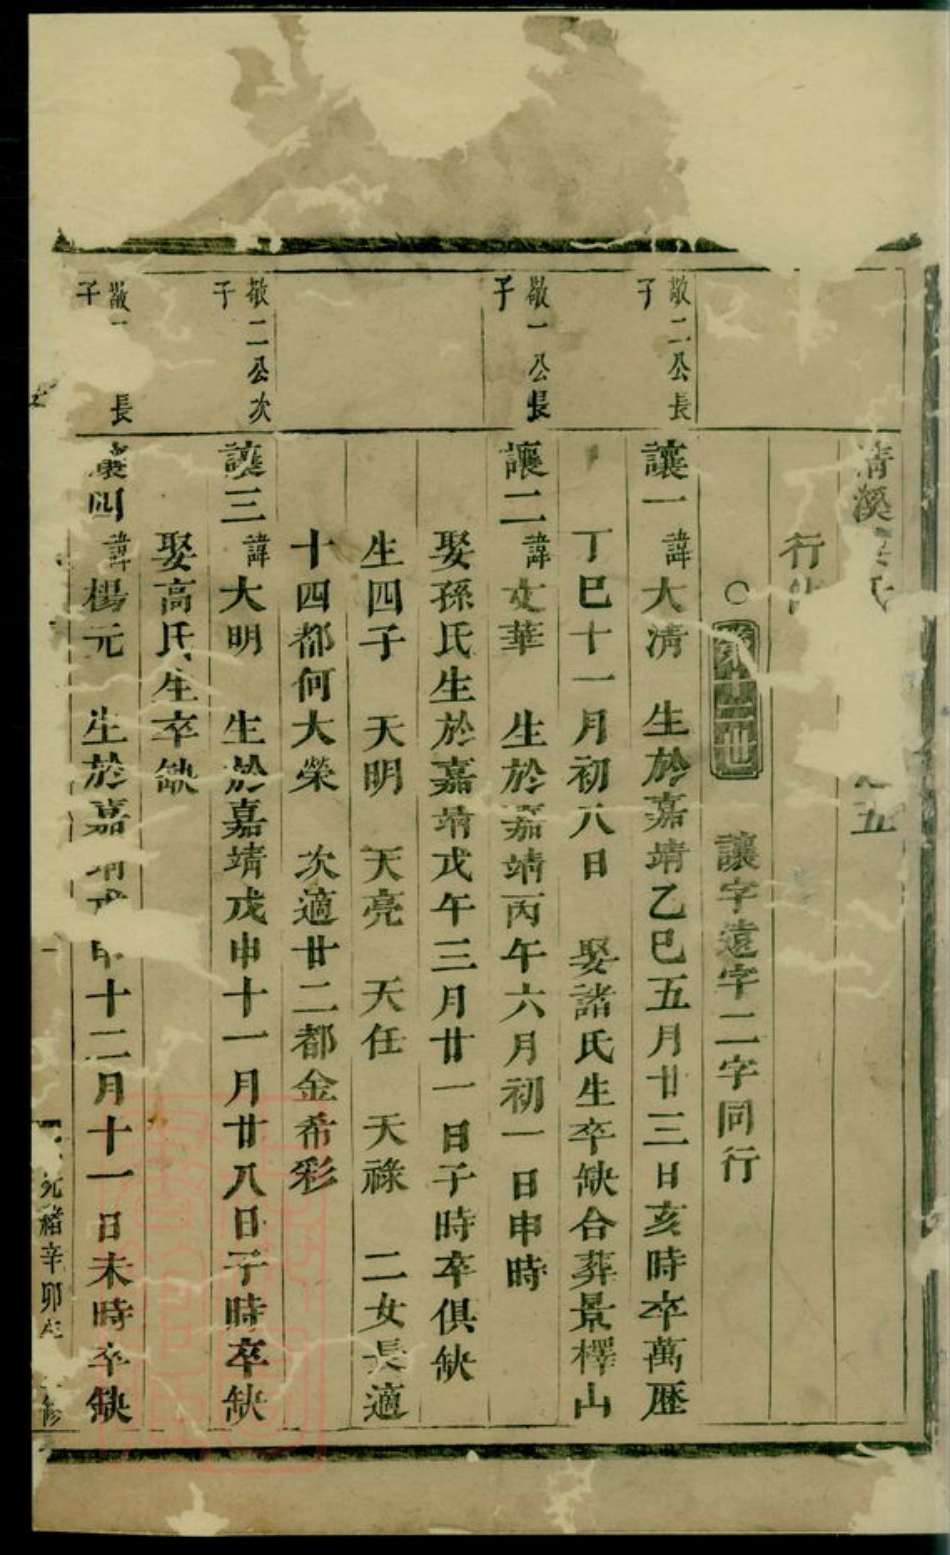 清溪 氏 五
行
○ 第二世 讓字遠字二字同行
敬二公長子
讓一 諱大清 生於嘉靖乙巳五月廿三日亥時卒萬歷
丁巳十一月初八日 娶諸氏生卒缺合葬景檡山
敬一公長子
讓二 諱文華 生於嘉靖丙午六月初一日申時
娶孫氏生於嘉靖戊午三月廿一日子時卒俱缺
生四子 天明 天亮 天任 天祿 二女長適
十四都何大榮 次適廿二都金希彩
敬二公次子
讓三 諱大明 生於嘉靖戊申十一月廿八日子時卒缺
娶高氏生卒缺
敬一 長子
讓四 諱楊元 生於嘉靖戊申十二月十一日未時卒缺
光緒辛卯年 修